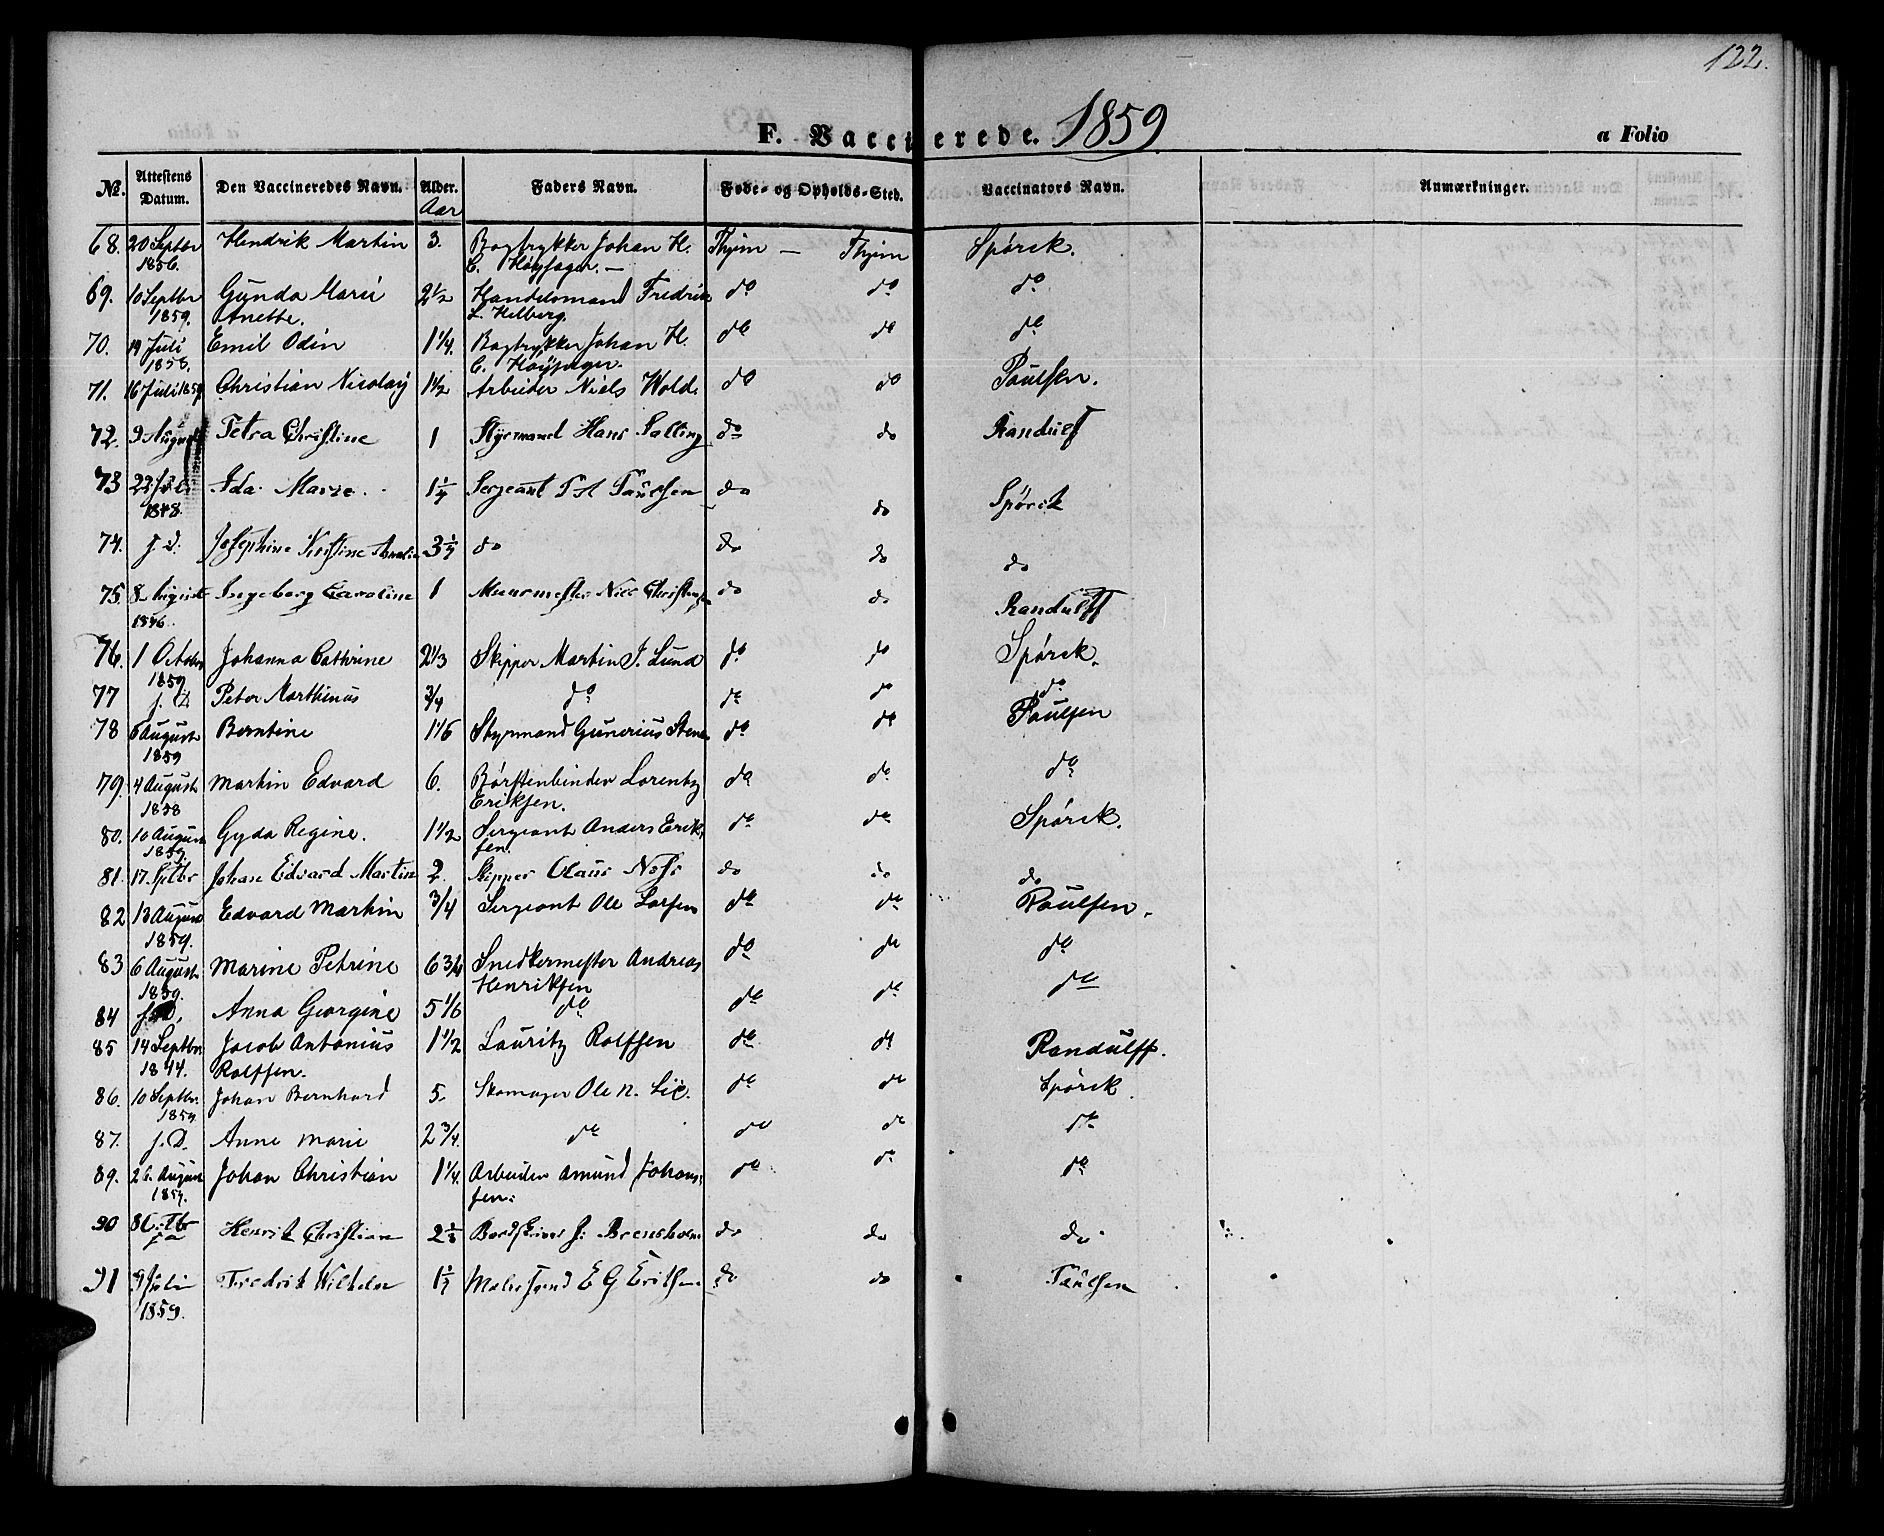 122.
F. Vaccinerede. 1859
a Folio
No. Attestens Datum. Den Vaccineredes Navn. Alder. Aar Faders Navn. Føde- og Opholds-Sted. Vaccinators Navn. Anmærkninger.
68. 20 Septbr 1856. Hendrik Martin 3. Bogtrykker Johan H. C. Høyjager. — Thjem — Thjem Spørck.
69. 10 Septbr 1859. Gunda Marie Anette. 2 1/2 Handelsmand Fredrik L. Helberg. do do do
70. 19 Juli 1858. Emil Odin 1 1/4. Bogtrykker Johan H. C. Høyjager. do do do
71. 16 Juli 1859 Christian Nicolaij 1 1/2 Arbeider Niels Wold. do do Paulsen.
72. 9 August Petra Christine 1 Styrmand Hans Salling do do Randulff
73 22 Juli 1848. Ida Marie 1 1/4 Sergeant Paulsen do do Spørck
74. f. D. Josephine Kirstine Amalia 3 1/4 do do do do
75. 8 August 1856. Ingeborg Caroline 1 Muurmester Nils Christensen do do Randulff
76. 1 October 1859 Johanna Cathrine 2 1/3 Skipper Martin J. Lund do do Spørck.
77 f. D Peter Marthinus 3/4 do do do do
78 6 August 1859 Berntine 1 1/6 Styrmand Gunerius Stene do do Paulsen
79. 4 August 1858 Martin Edvard 6. Børstenbinder Lorentz Eriksen. do do do
80. 10 August 1859. Gyda Regine. 1 1/2 Sergeant Anders Eriksen. do do Spørck.
81. 17. Sptbr Johan Edvard Martin 2. Skipper Claus do do do
82 13 August 1859. Edvard Martin 3/4 Sergeant Ole Larsen do do Paulsen.
83 6 August 1859. Marine Petrine 6 3/4 Snedkermester Andreas Henriksen do do do
84 f. D. Anna Georgine 5 1/6 do do do do
85 14 Septbr. 1844. Jacob Antonius Rolffsen. 1 1/2 Lauritz Rolffsen do do Randulff.
86. 10 Septbr. 1859 Johan Bernhard 5. Skomager Ole N. Lie. do do Spørck.
87. f. D. Anne Marie 2 3/4. do do do do
89. 26. August 1859. Johan Christian 1 1/4. Arbeider Amund Johansen. do do do
90 8 Henrik Christian 2 1/2 do do do
91 9 Juli 1859. Fredrik Wilhelm 1 1/4 Malersvend E G Eriksen do do Paulsen